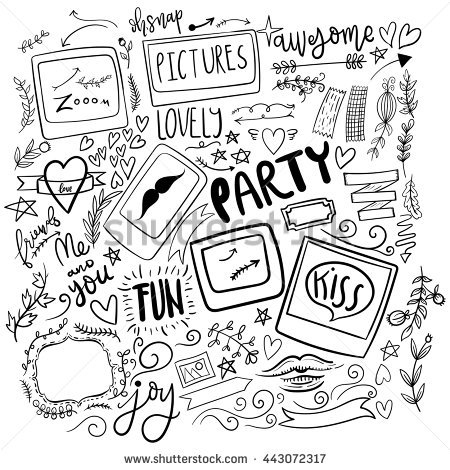 oh snap
PICTURES
awysome
Zooom
LOVELY
PARTY
love
friends
Me
and
YOU
KISS
FUN
joy
shutterstock
www.shutterstock.com · 443072317